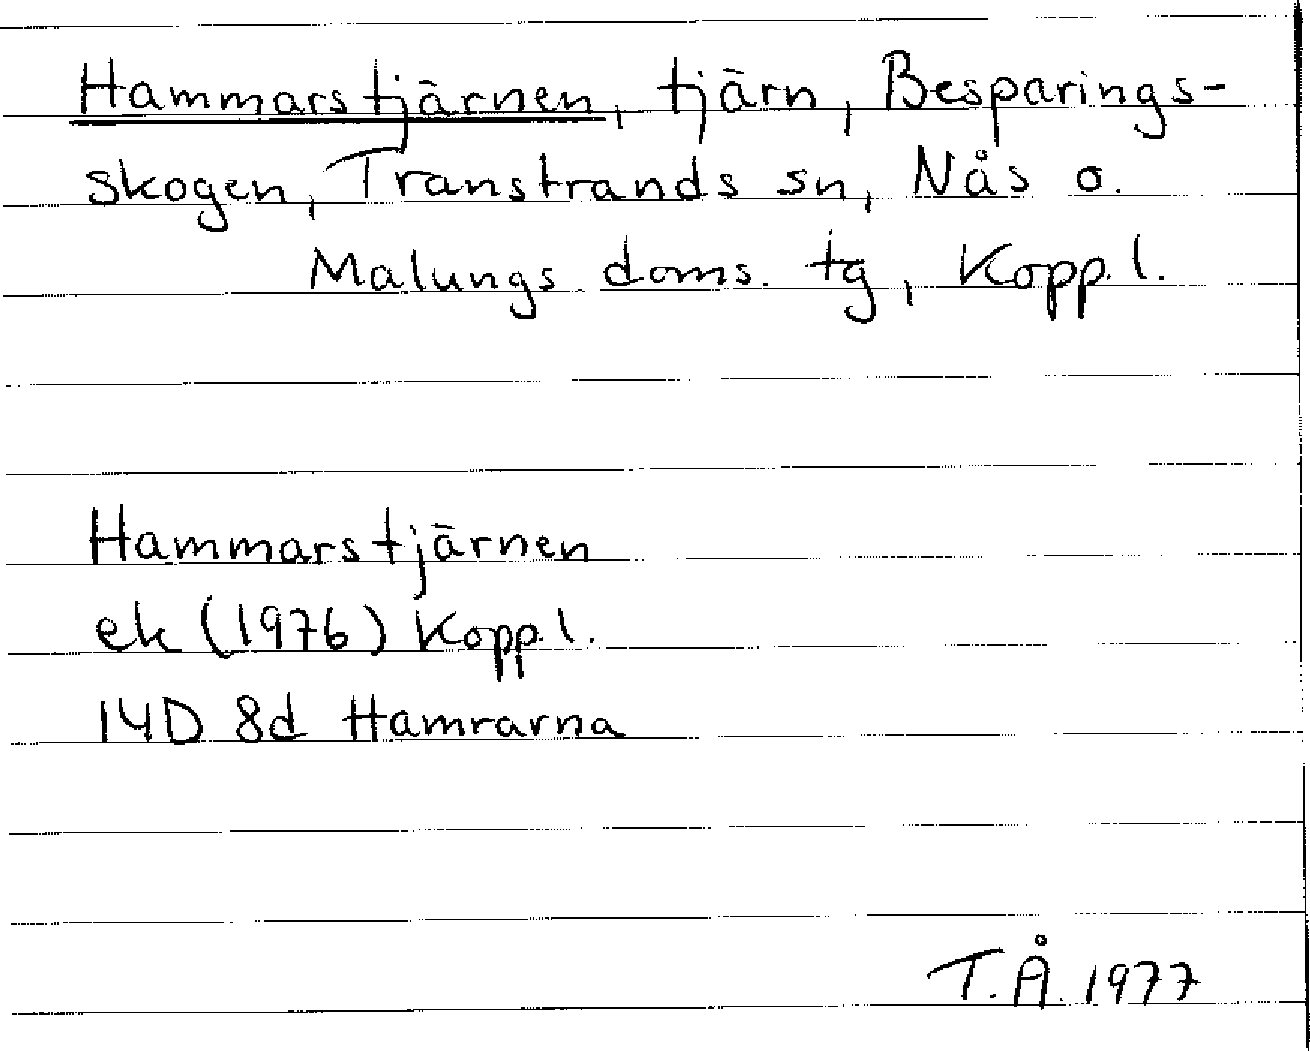 Hammarstjärnen, tjärn, Besparings-
skogen, Transtrands sn, Nås o.
Malungs doms. tg, Kopp. l.
Hammarstjärnen
ek (1976) Kopp. l.
14D 8d Hamrarna
T. Å. 1977